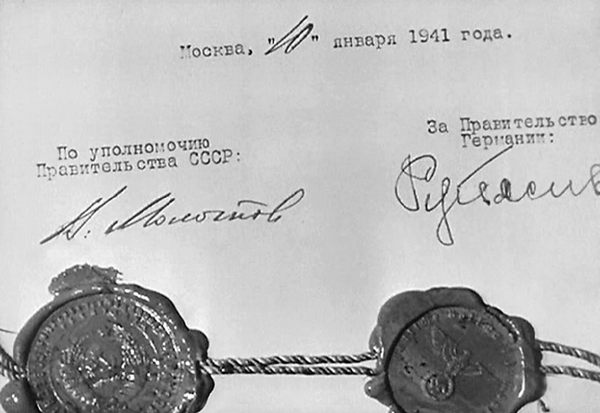 Москва, "10" января 1941 года.
По уполномочию
Правительства СССР:
В. Молотов
За Правительство
Германии: